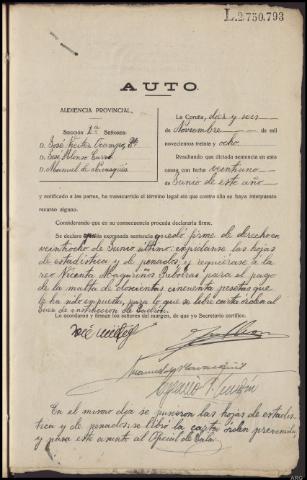 L.2.750.793
AUTO.
AUDIENCIA PROVINCIAL.
Sección 1ª
Señores:
D. José
D. José Alonso
D. Manuel de
La Coruña, diez y seis
de Noviembre de mil
novecientos treinta y ocho
Resultando que dictada sentencia en esta
causa con fecha veintiuno
de Junio de este año
y notificada a las partes, ha transcurrido el término legal sin que contra ella se haya interpuesto
recurso alguno.
Considerando que en su consecuencia procede declararla firme.
Se declara que la expresada sentencia quedó firme de derecho en
veintiocho de Junio último; expídanse las hojas
de estadística y de penados, y requiérase a la
reo Vicenta para el pago
de la multa de doscientas cincuenta pesetas que
le ha sido impuesta, para lo que se libre carta orden al
Juez de instrucción de Padrón.
Lo acordaron y firman los señores del margen, de que yo Secretario certifico.
En el mismo día se pusieron las hojas de estadís-
tica y de penados, se libró la carta orden prevenida
y pasa este asunto al Oficial de Sala.